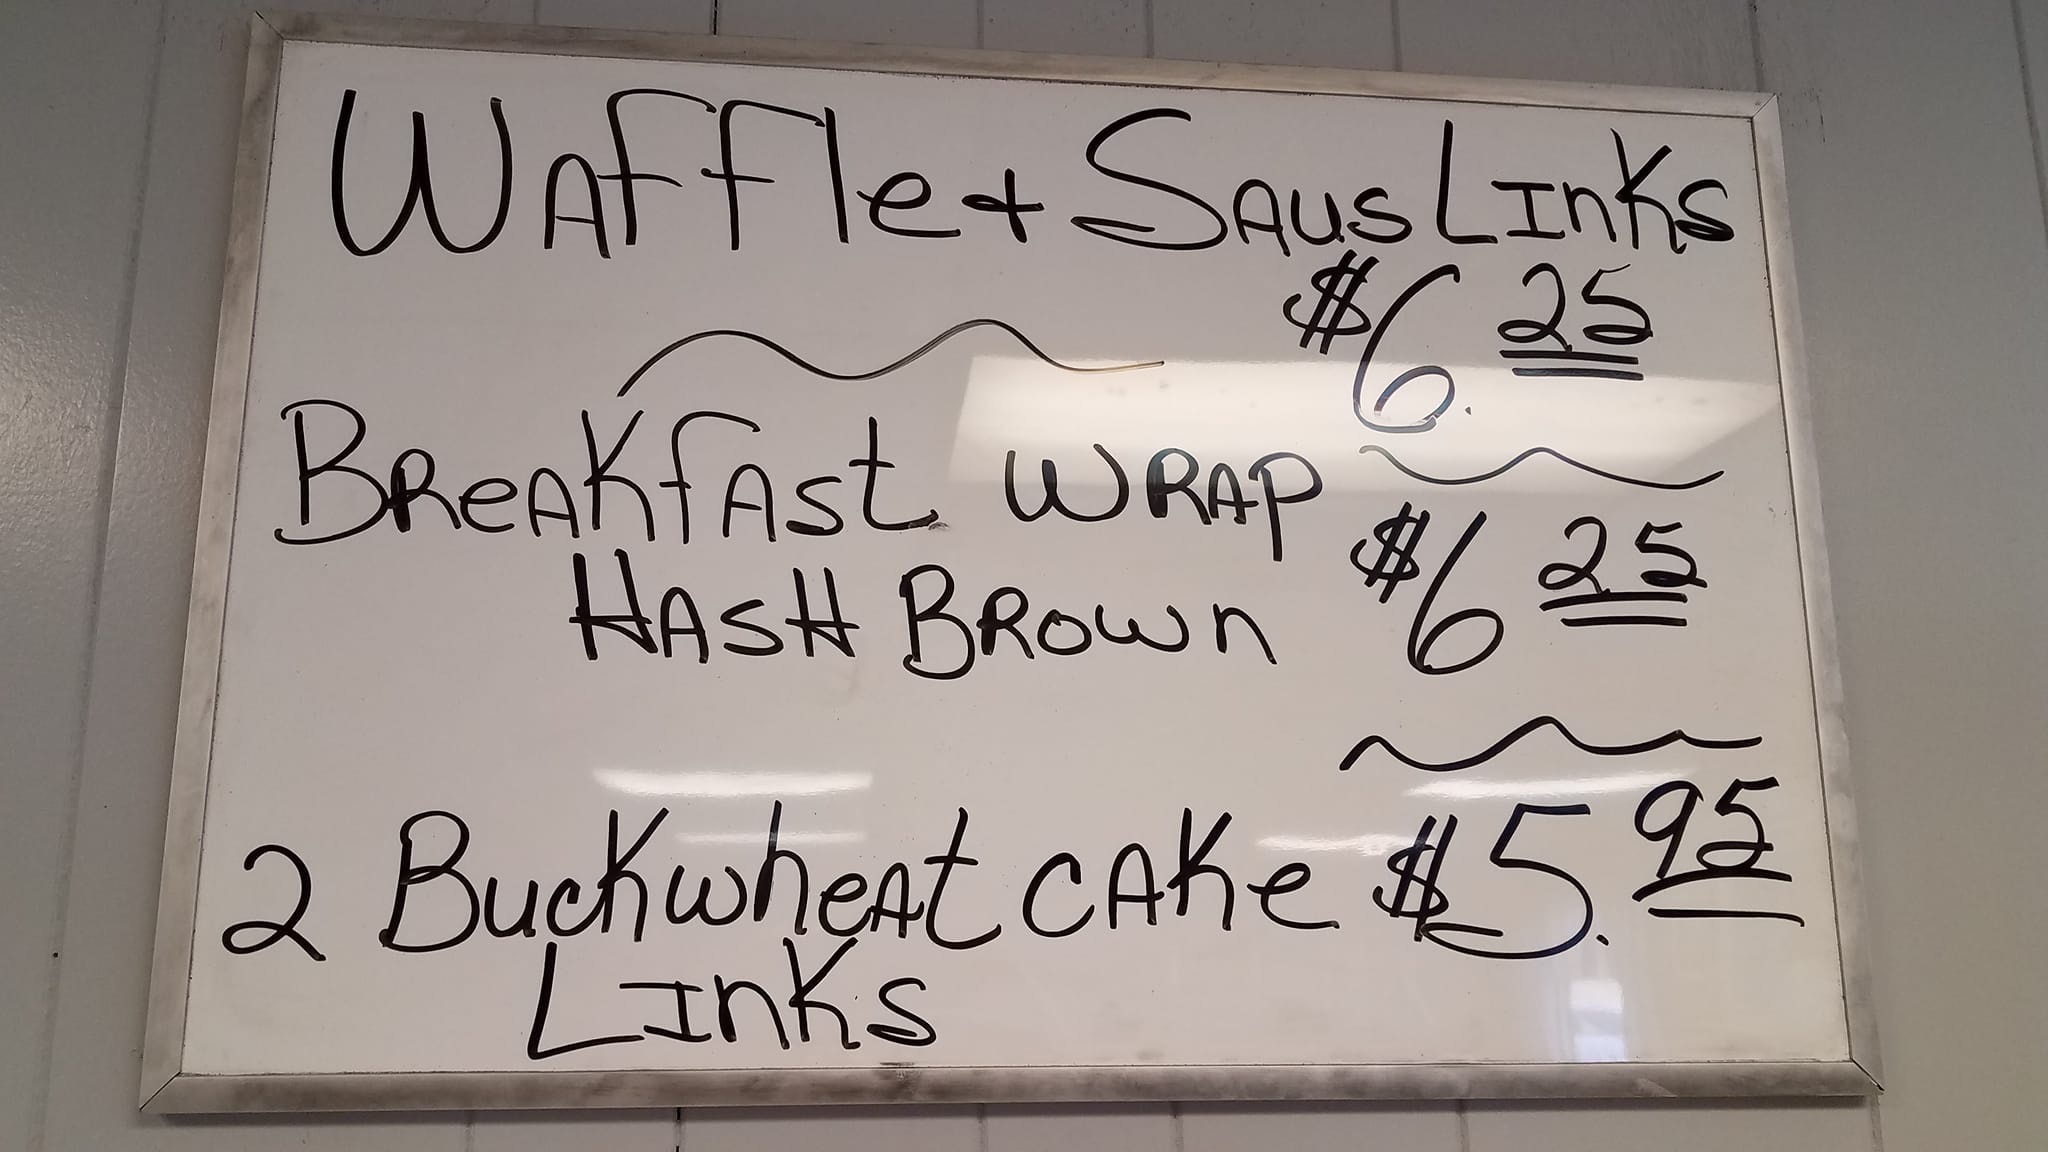 Waffle + Saus Links
$6.25
Breakfast Wrap $6 25
Hash Brown
2 Buckwheat Cake $5.95
Links